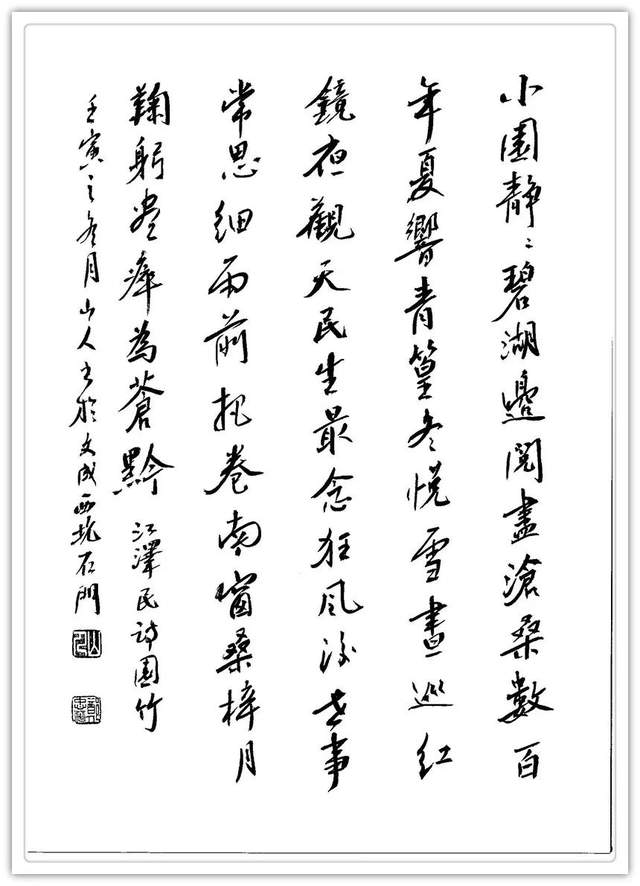 小園靜〻碧湖邊閱盡滄桑數百
年夏響青篁冬悅雪晝巡紅
鏡夜觀天民生最念狂風後世事
常思細雨前把卷南窗桑梓月
鞠躬盡瘁為蒼黔 江澤民詩園竹
壬寅之冬月山人書於文成西坑石門